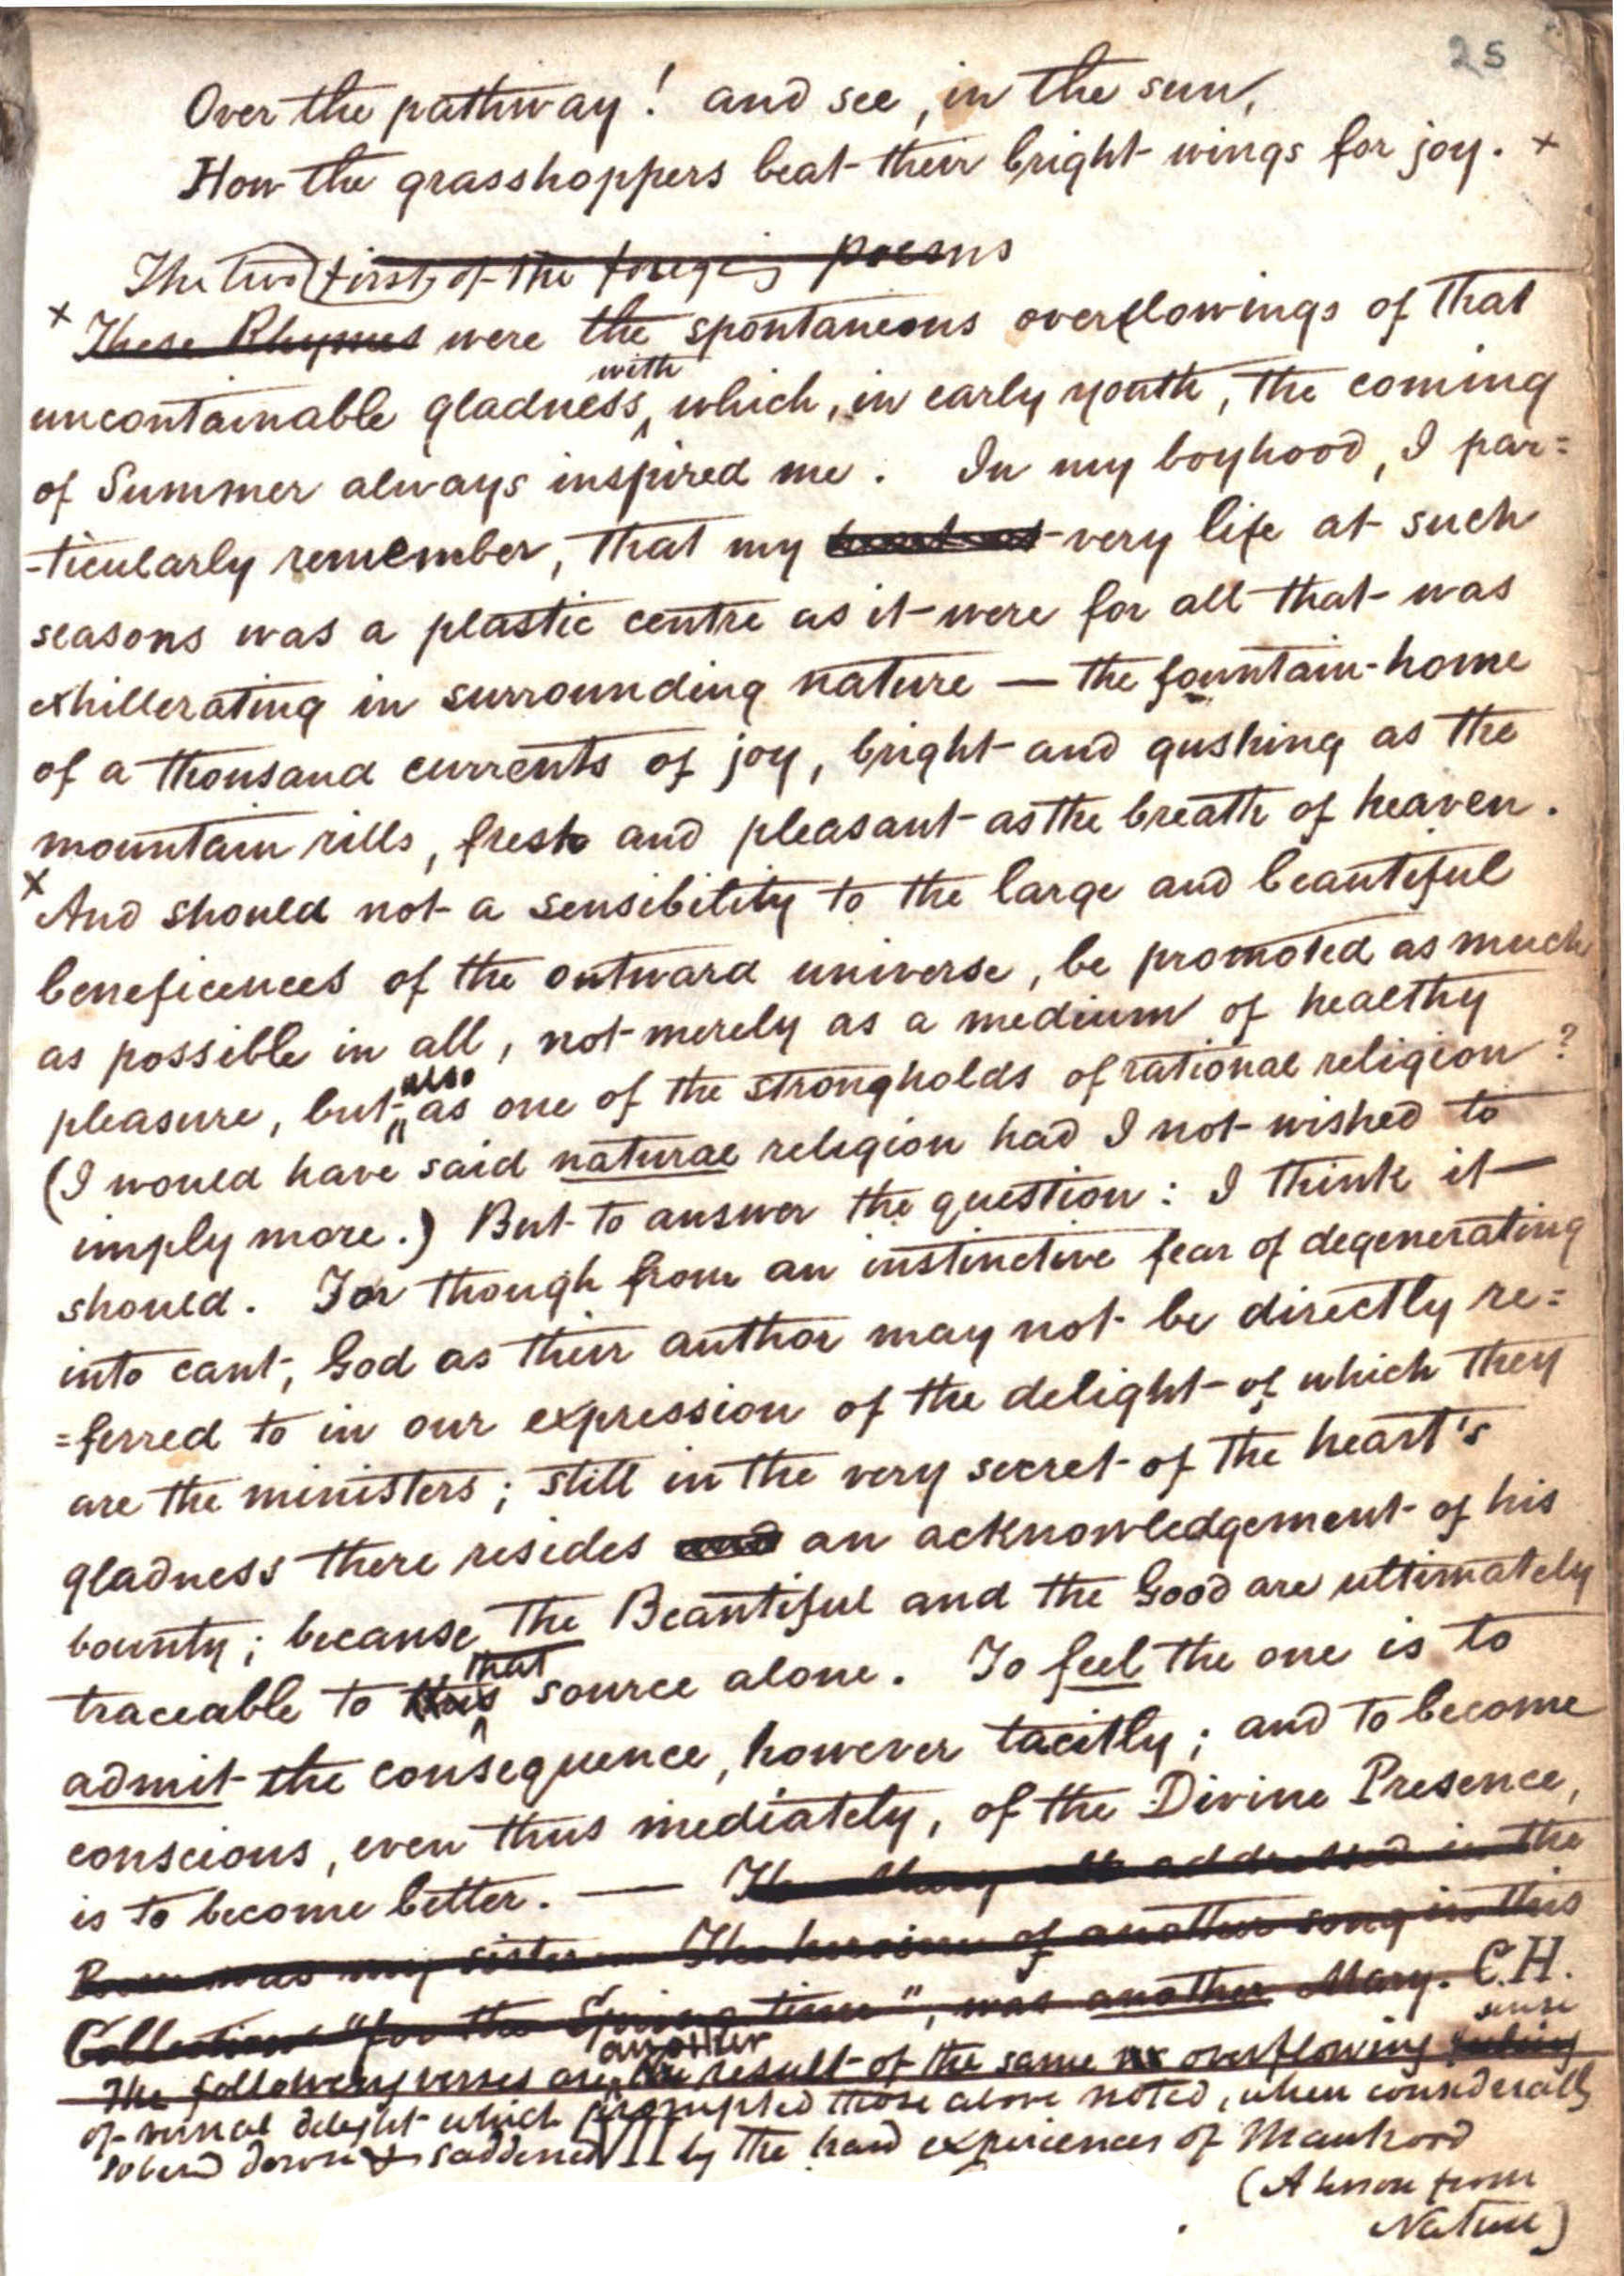 25
Over the pathway! and see, in the sun,
How the grasshoppers beat their bright wings for joy. +
The two first of the foregoing poems
x These Rhymes were the spontaneous overflowings of that
with
uncontainable gladness, which, in early youth, the coming
of Summer always inspired me. In my boyhood, I par=
-ticularly remember, that my very life at such
seasons was a plastic centre as it were for all that was
exhillerating in surrounding nature — the fountain-home
of a thousand currents of joy, bright and gushing as the
mountain rills, fresh and pleasant as the breath of heaven.
x And should not a sensibility to the large and beautiful
beneficences of the outward universe, be promoted as much
as possible in all, not merely as a medium of healthy
also
pleasure, but as one of the strongholds of rational religion?
(I would have said natural religion had I not wished to
imply more.) But to answer the question: I think it
should. For though from an instinctive fear of degenerating
into cant, God as their author may not be directly re=
=ferred to in our expression of the delight of which they
are the ministers; still in the very secret of the heart's
gladness there resides and an acknowledgement of his
bounty; because the Beautiful and the Good are ultimately
that
traceable to this source alone. To feel the one is to
admit the consequence, however tacitly; and to become
conscious, even thus mediately, of the Divine Presence,
is to become better. — The Mary addressed in the
was my sister The heroine of another song in this
Collection "for the Spring time", was another Mary. C.H.
another sense
The following verses are the result of the same overflowing feeling
of vernal delight which prompted those above noted, when considerably
sobered down & saddened VII by the hard experiences of Manhood
(A lesson from
Nature)